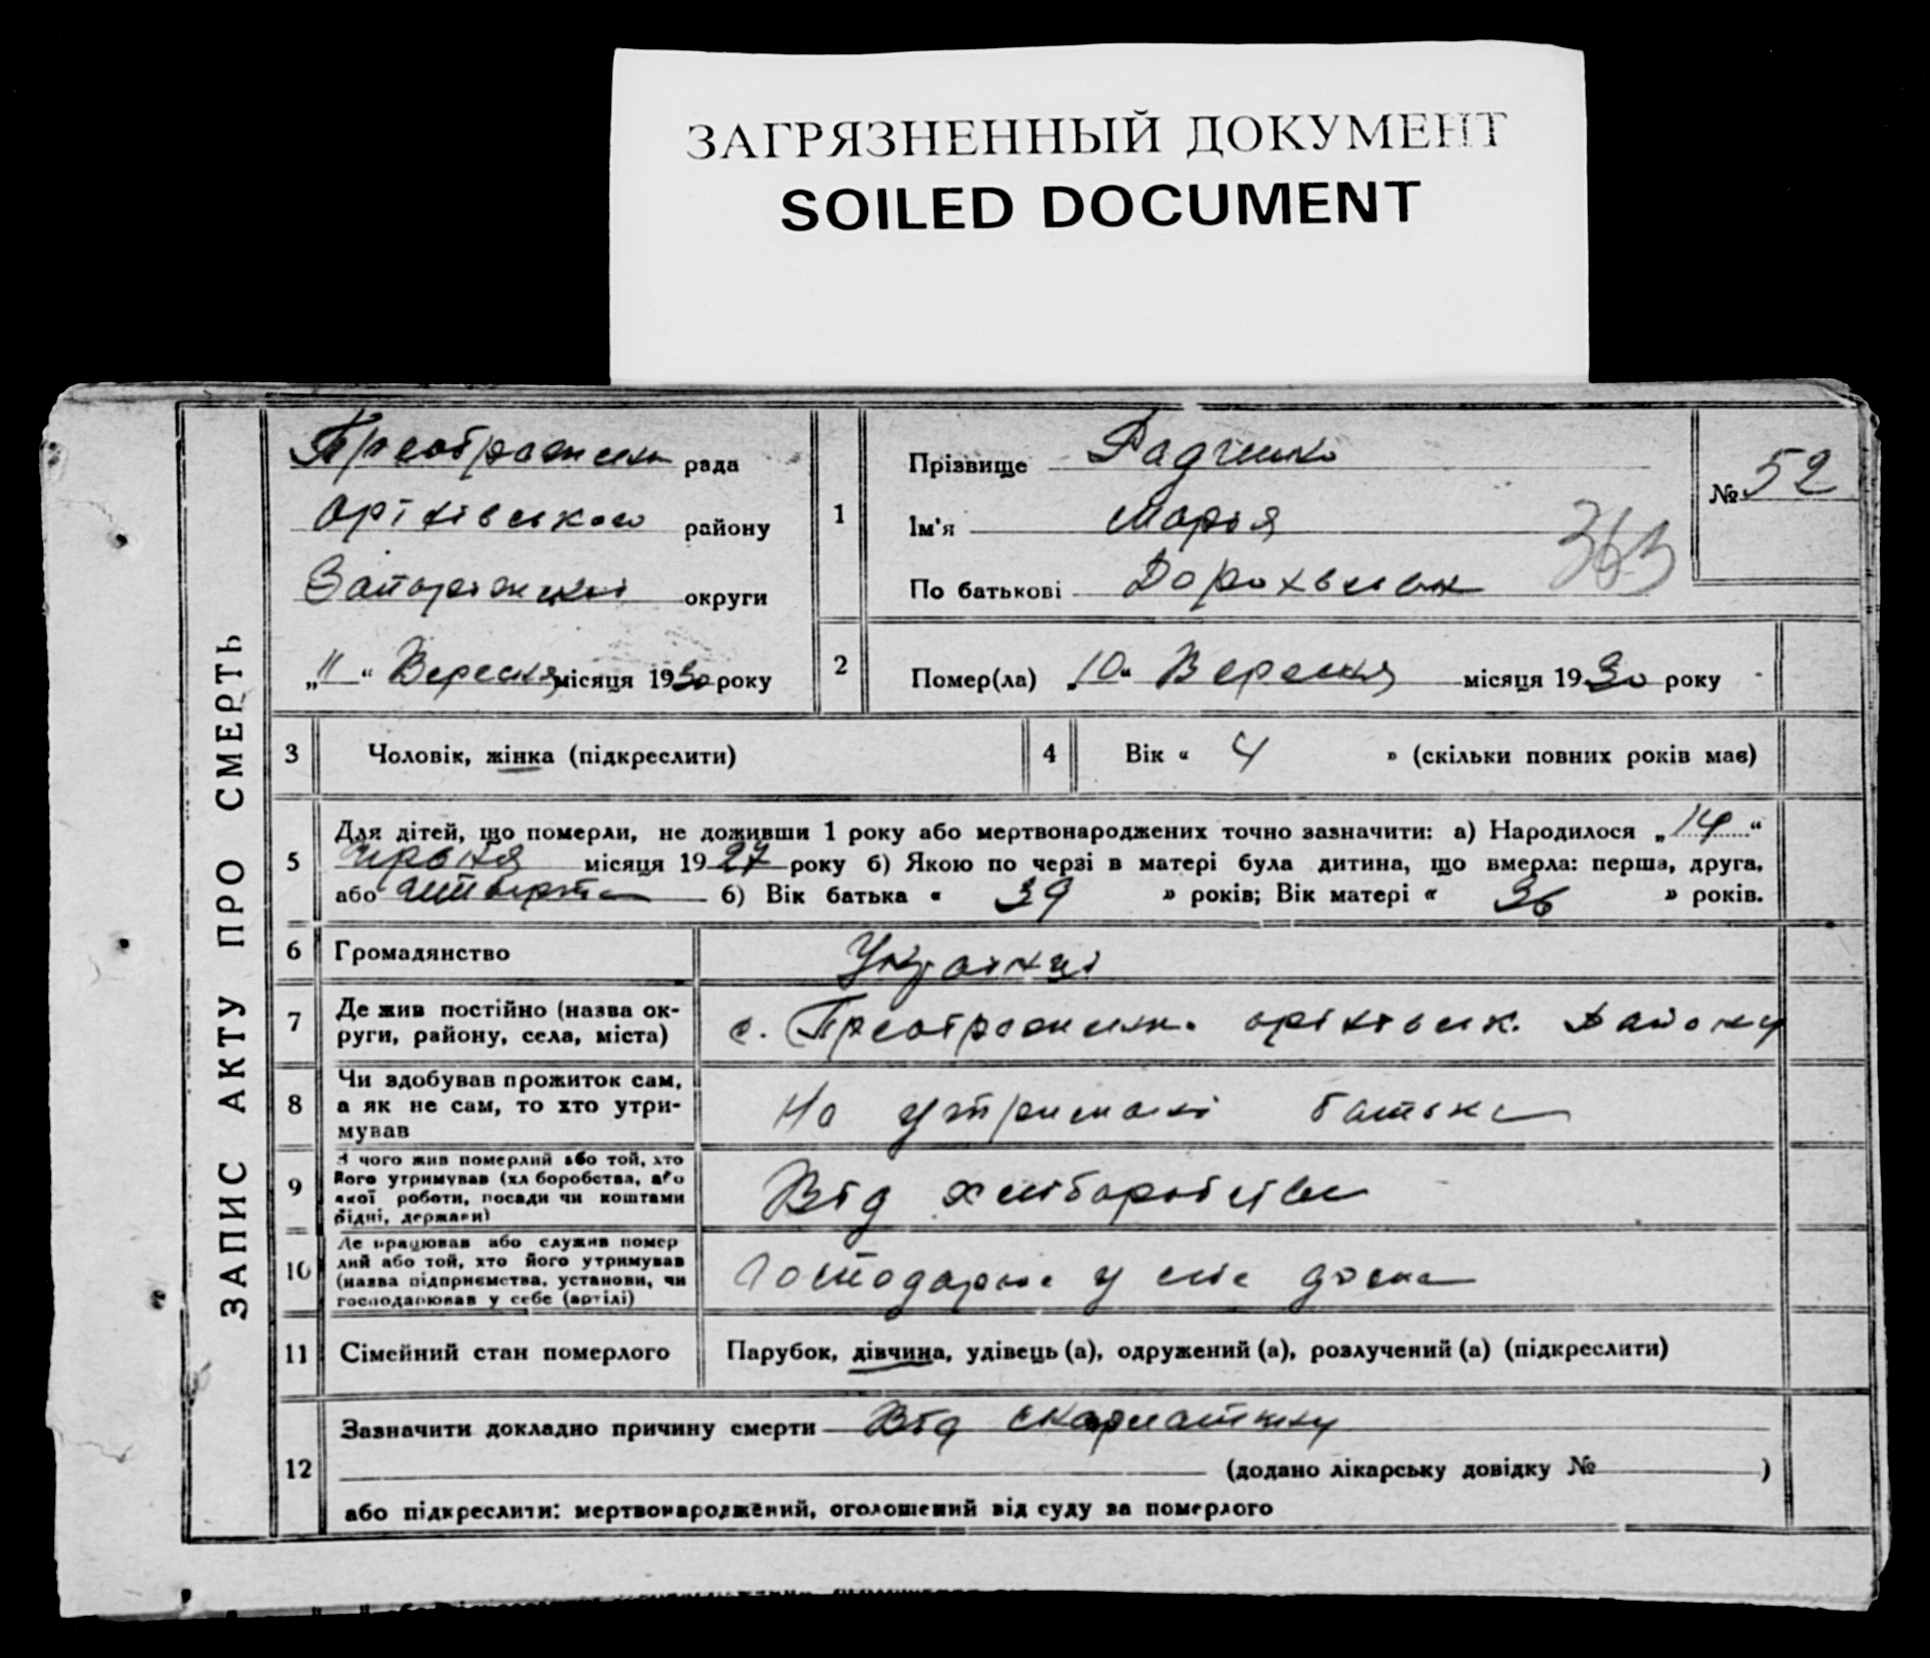 ЗАГРЯЗНЕННЫЙ ДОКУМЕНТ
SOILED DOCUMENT
ЗАПИС АКТУ ПРО СМЕРТЬ
Преображен рада
Оріхівського району
Запоріжської округи
„11“ Вересня місяця 1930 року
1
Прізвище Радченко
Ім'я Марія
По батькові
№ 52
363
2
Помер(ла) „10“ Вересня місяця 1930 року
3 Чоловік, жінка (підкреслити)
4 Вік « 4 » (скільки повних років має)
5 Для дітей, що померли, не доживши 1 року або мертвонароджених точно зазначити: а) Народилося „14“
місяця 1927 року б) Якою по черзі в матері була дитина, що вмерла: перша, друга,
або четверта б) Вік батька « 39 » років; Вік матері « 36 » років.
6 Громадянство Українці
7 Де жив постійно (назва ок-
руги, району, села, міста) с. Преображен. Оріхівськ. Району
8 Чи здобував прожиток сам,
а як не сам, то хто утри-
мував На утримані батька
9 З чого жив померлий або той, хто
його утримував (хліборобства, або
якої роботи, посади чи коштами
рідні, держави) Від хліборобства
10 Де працював або служив помер
лий або той, хто його утримував
(назва підприємства, установи, чи
господарював у себе (артілі) Господарює у себе дома
11 Сімейний стан померлого Парубок, дівчина, удівець (а), одружений (а), розлучений (а) (підкреслити)
12 Зазначити докладно причину смерти Від скарлатини
(додано лікарську довідку № )
або підкреслити: мертвонароджений, оголошений від суду за померлого